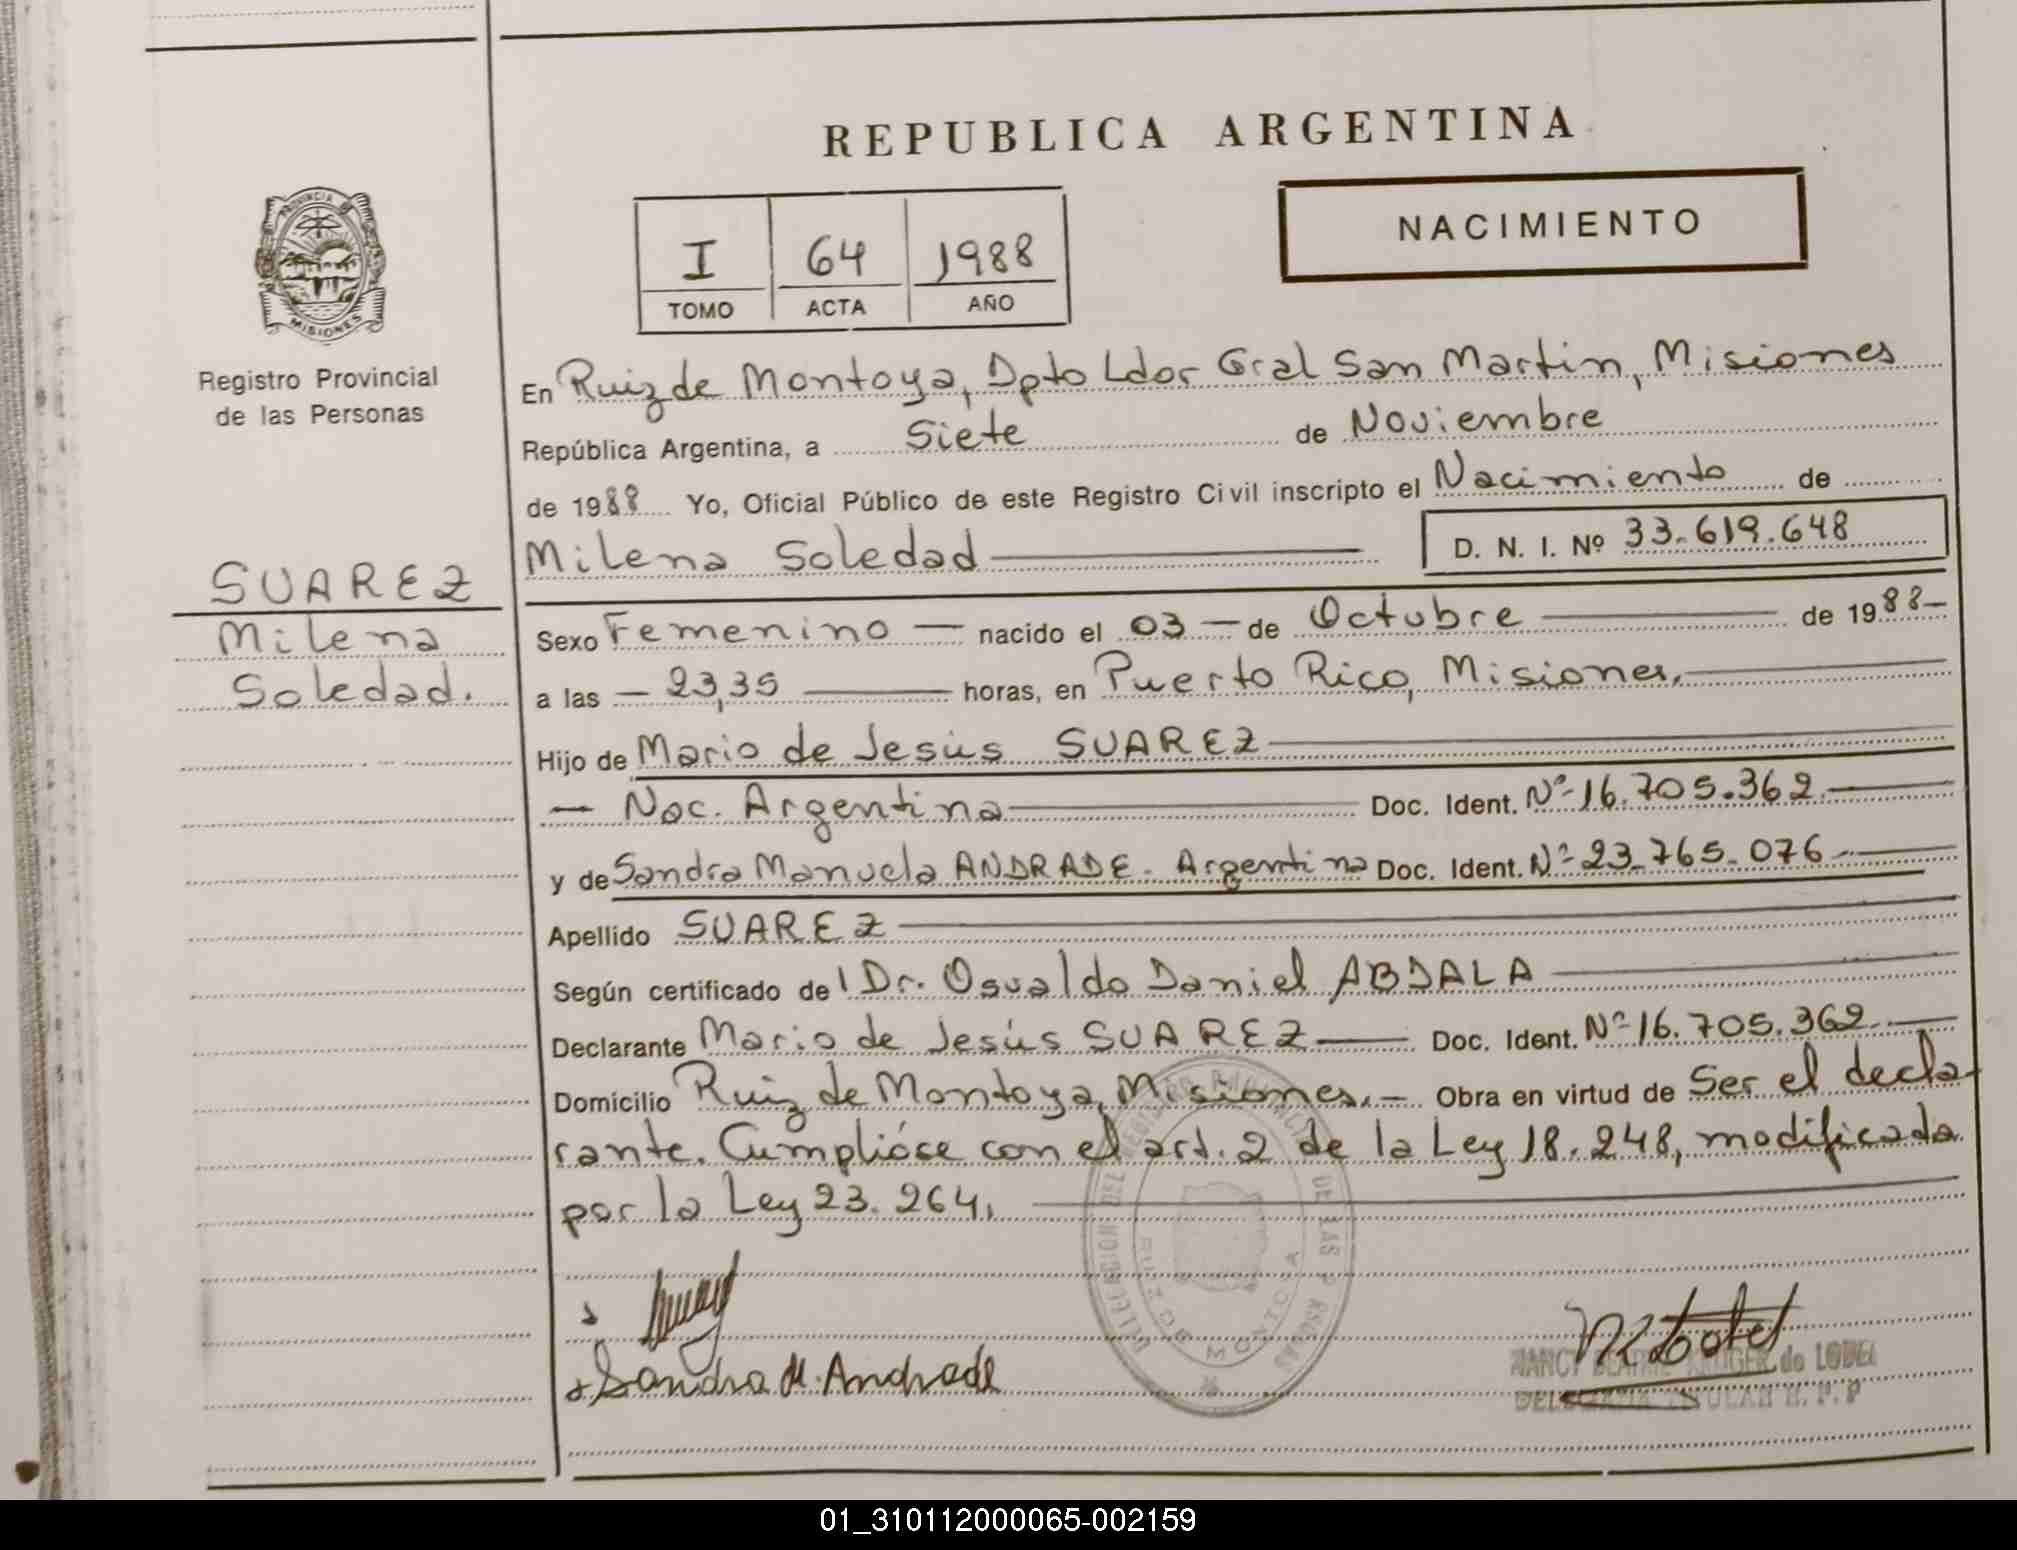 REPUBLICA ARGENTINA
NACIMIENTO
I 64 1988
TOMO ACTA AÑO
PROVINCIA
MISIONES
Registro Provincial
de las Personas
SUAREZ
Milena
Soledad.
En Ruiz de Montoya, Dpto Ldor Gral San Martin, Misiones
República Argentina, a Siete de Noviembre
de 1988 Yo, Oficial Público de este Registro Civil inscripto el Nacimiento de
Milena Soledad D. N. I. Nº 33.619.648
Sexo Femenino — nacido el 03 — de Octubre — de 1988 —
a las — 23,35 — horas, en Puerto Rico, Misiones. —
Hijo de Mario de Jesús SUAREZ —
— Nac. Argentina — Doc. Ident. Nº 16.705.362. —
y de Sandra Manuela ANDRADE. Argentina Doc. Ident. Nº 23.765.076 —
Apellido SUAREZ —
Según certificado del Dr. Osvaldo Daniel ABDALA —
Declarante Mario de Jesús SUAREZ — Doc. Ident. Nº 16.705.362. —
Domicilio Ruiz de Montoya, Misiones. — Obra en virtud de Ser el decla-
rante. Cumplióse con el art. 2 de la Ley 18.248, modificada
por la Ley 23.264. —
RUIZ DE MONTOYA
Sandra M. Andrade
NANCY KRUGER de LODEL
01_310112000065-002159